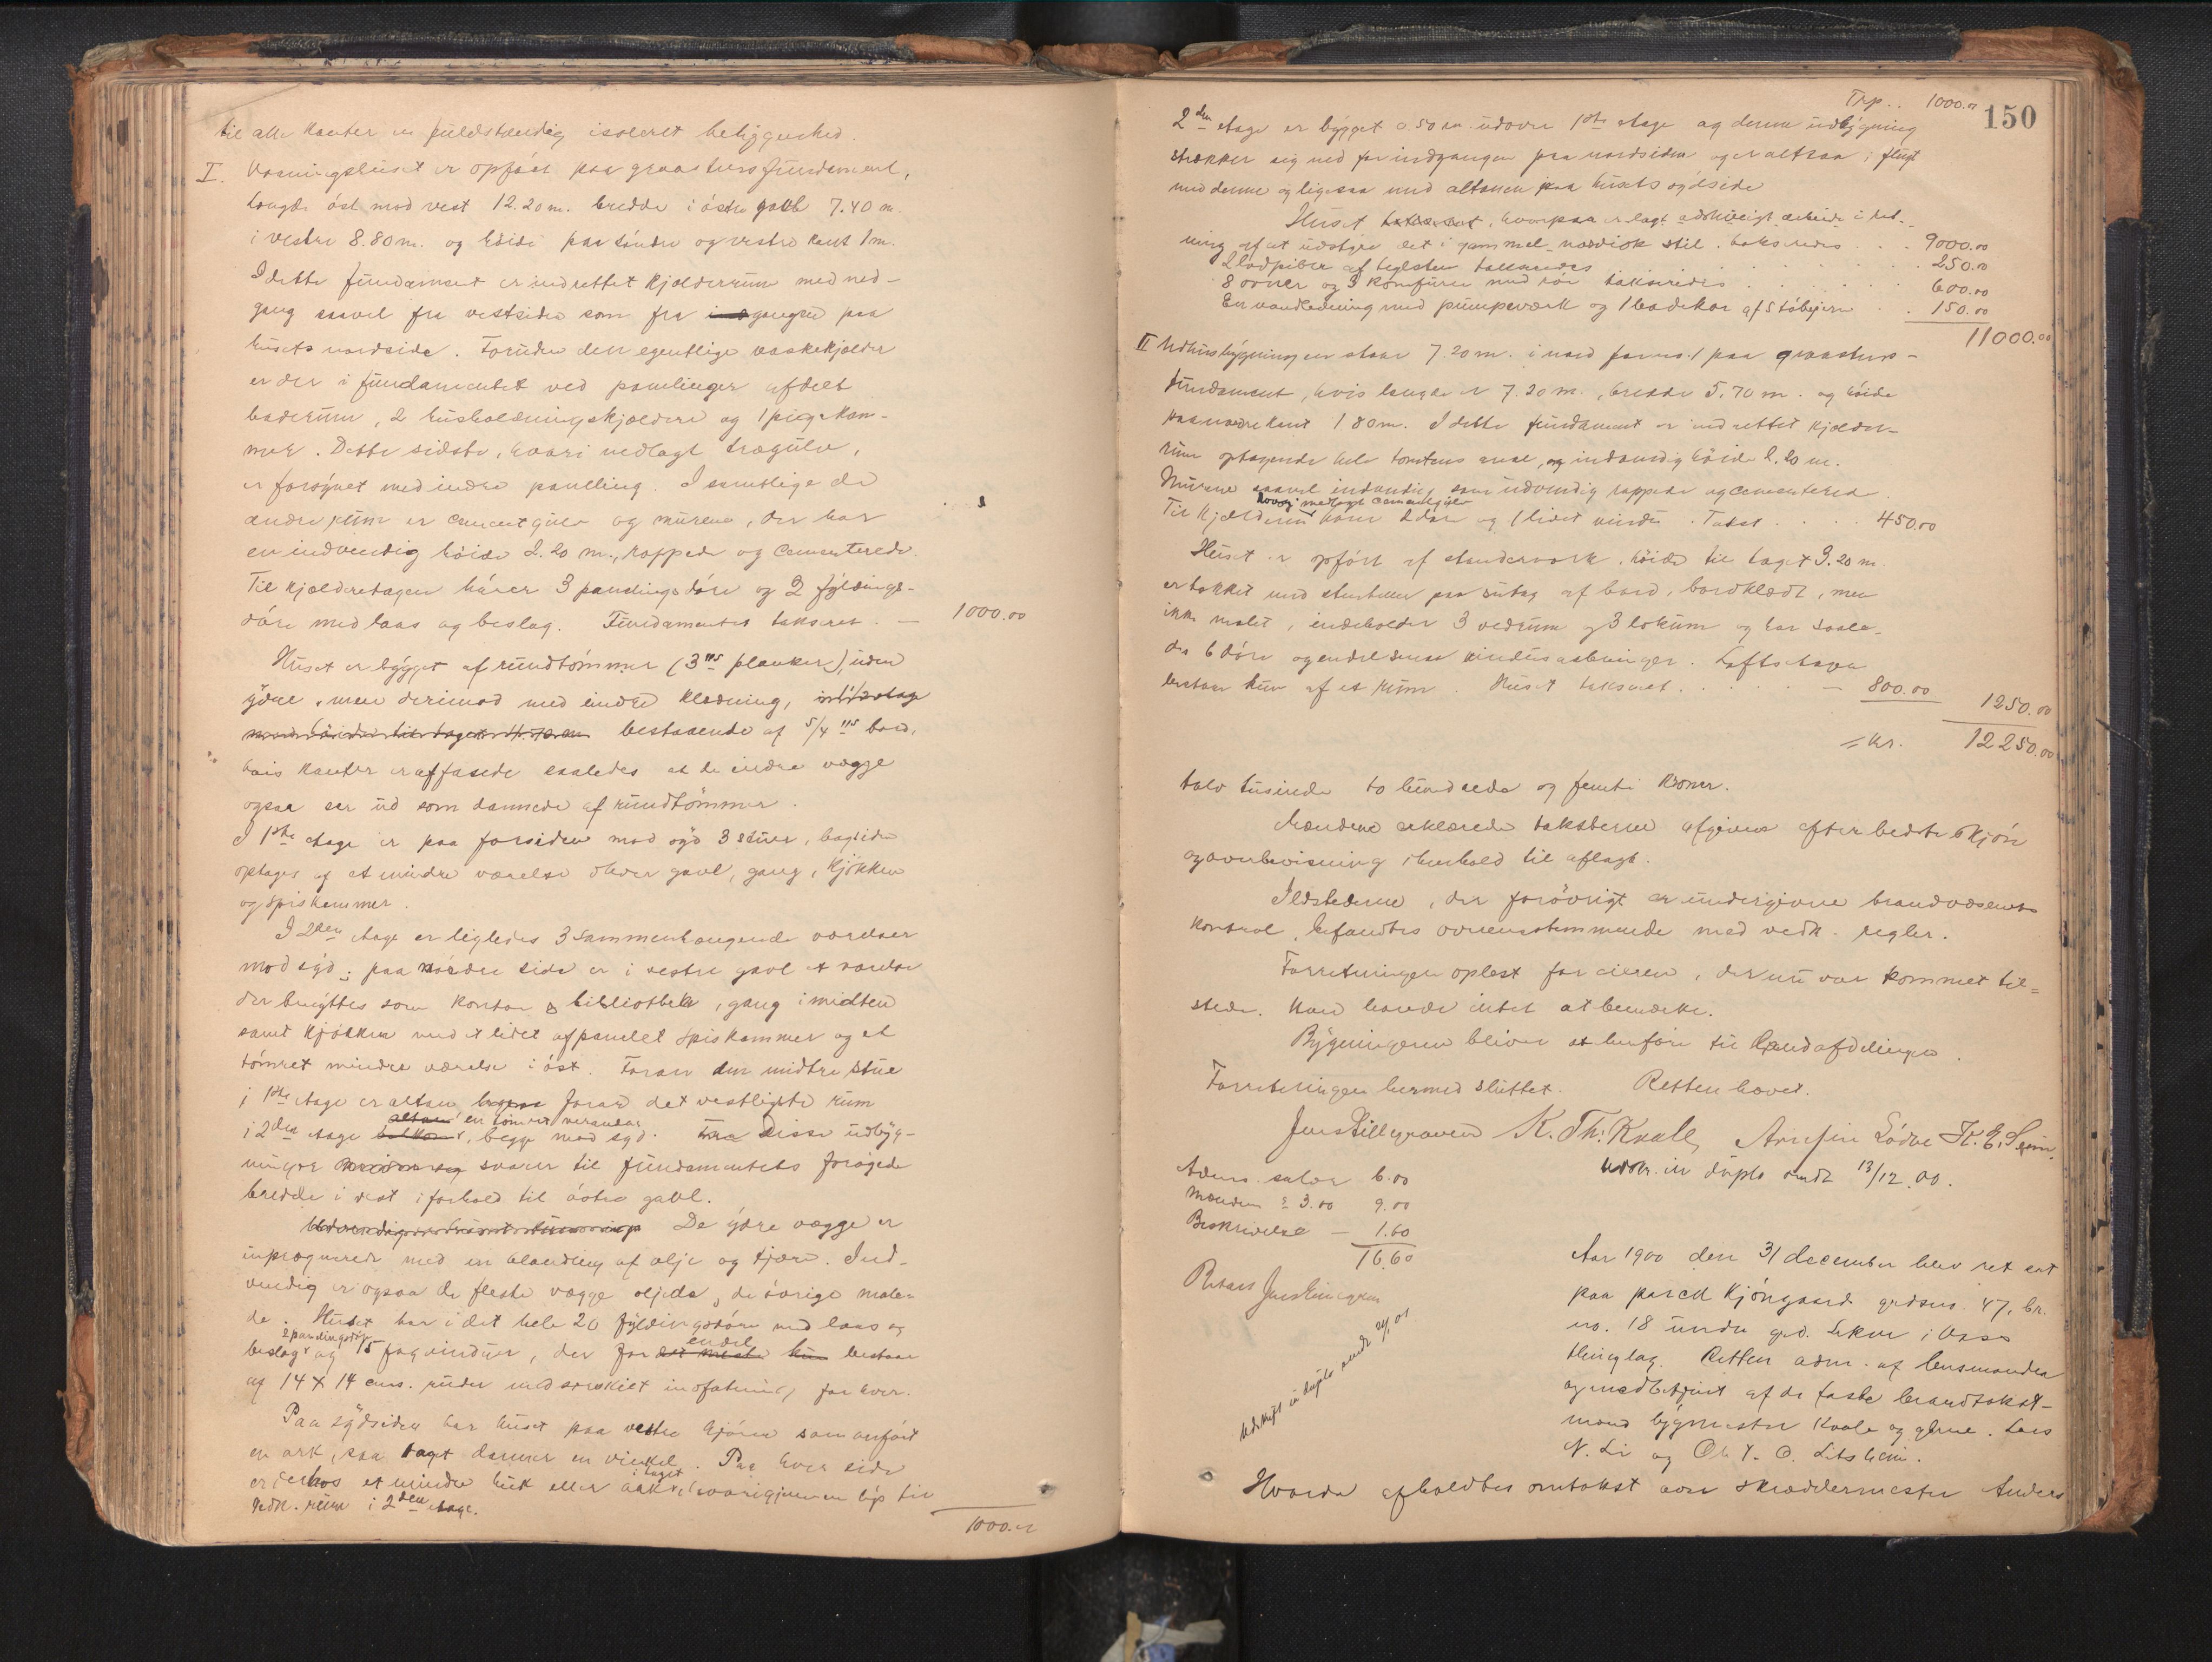 til alle kanter en fuldstændig isoleret beliggenhed.
I. Vaaningshuset er opført paa graastensfundament,
længde øst mod vest 12.20 m. bredde i østre gavl 7.40 m.
i vestre 8.80 m. og høide paa søndre og vestre kant 1 m.
I dette fundament er indrettet kjælderrum med ned-
gang saavel fra vestsiden som fra gangen paa
husets nordside. Foruden den egentlige vaskekjælder
er der i fundamentet ved panelinger afdelt
baderum, 2 husholdningskjældere og 1 pigekam-
mer. Dette sidste, hvori nedlagt trægulv,
er forsynet med indre panelling. I samtlige de
andre rum er cementgulv og murene, der har
en indvendig høide 2.20 m., rappede og cementerede.
Til kjælderetagen hører 3 panelingsdøre og 2 fyldings-
døre med laas og beslag. Fundamentet takseret. — 1000.00
Huset er bygget af rundtømmer (3"s planker), uden
ydre, men derimod med indre klædning, i 1ste etage
med høide til taget 4.70 m bestaaende af 5/4"s bord,
hvis kanter er affasede saaledes at de indre vægge
ogsaa ser ud som dannede af rundtømmer.
I 1ste etage er paa forsiden mod syd 3 stuer, bagsiden
optages af et mindre værelse i hver gavl, gang, kjøkken
og spiskammer.
I 2den etage er ligeledes 3 sammenhængende værelser
mod syd; paa nordre side er i vestre gavl et værelse
der benyttes som kontor & bibliothek, gang i midten
samt kjøkken med et lidet afpanelet spiskammer og et
tømret mindre værelse i øst. Foran den midtre stue
i 1ste etage er altan foran det vestligste rum
altan en tømret veranda
i 2den etage balkon, begge mod syd. Disse udbyg-
ninger svarer til fundamentets forøgede
bredde i vest i forhold til østre gavl.
De ydre vægge er
imprægnerede med en blanding af olje og tjære. Ind-
vendig er ogsaa de fleste vægge oljede, de øvrige male-
de. Huset har i det hele 20 fyldingsdøre med laas og
2 panelingsdøre endel
beslag og 15 fag vinduer, der for det meste kun bestaar
af 14 X 14 cms. ruder med særskilt indfatning for hver.
Paa sydsiden har huset paa vestre hjørne som anført
en ark, saa taget danner en vinkel. Paa hver side
i taget
er derhos et mindre huk eller ark til
vedk. rum i 2den etage.
1000.00
Trp.. 1000.00
150
2den etage er bygget 0.50 m. udover 1ste etage og denne udbygning
strækker sig ned for indgangen paa nordsiden og er altsaa i flugt
med denne og ligesaa med altanen paa husets sydside
Huset takseret, hvorpaa er lagt adskilligt arbeide i ret-
ning af at udstyre det i gammel-nordisk stil, takseredes . . . 9000.00
2 ladpiber af teglsten takseredes . . . . . . 250.00
8 ovner og 3 komfurer med rør takseredes . . . . . 600.00
En vandledning med pumpeværk og 1 badekar af støbejern . . 150.00
11000.00
II Udhusbygningen staar 7.20 m. i nord for no. 1 paa graastens-
fundament, hvis længde er 7.20 m., bredde 5.70 m. og høide
paa nordre kant 1 80 m. I dette fundament er indrettet kjælder-
rum optagende hele tomtens areal, og indvendig høide 2.20 m.
Murene saavel indvendig som udvendig rappede og cementerede
hvori nedlagt cementgulv
Til kjælderen hører 2 døre og 1 lidet vindu. Takst . . . . 450.00
Huset er opført af standerværk, høide til taget 3.20 m.
er tækket med stenheller paa sutag af bord, bordklædt, men
ikke malet, indeholder 3 vedrum og 3 lokum og har saale-
des 6 døre og endel smaa vindusaabninger. Loftsetagen
bestaar kun af et rum. Huset takseret. . . . . — 800.00 1250.00
= kr. 12250.00
tolv tusinde to hundrede og femti kroner.
Mændene erklærede taksterne afgivne efter bedste skjøn
og overbevisning i henhold til aflagt.
Ildstederne, der forøvrigt er undergivne brandvæsenets
kontrol, befandtes overensstemmende med vedk. regler.
Forretningen oplæst for eieren, der nu var kommet til-
stede. Han havde intet at bemærke.
Bygningerne bliver at henføre til Landafdelingen.
Forretningen hermed sluttet. Retten hævet.
Jens Lillegraven K. Th. Kvale Arnfin Lødve K. E. Seim.
Udskr. in duplo sendt 13/12 00.
Adms. salær 6.00
Mænden à 3.00 9.00
Beskrivelse — 1.60
16.60
Udskrift in duplo sendt
Aar 1900 den 31 december blev ret sat
paa parcel Kjöngaard grdsno. 47, br.
no. 18 under grd. Lekve i Voss
thinglag. Retten adm. af lensmanden
og medbetjent af de faste brandtakst-
mænd bygmester Kvale og gbrne. Lars
N. Li og Ole T. O. Litsheim.
Hvorda afholdtes omtakst over skræddermester Anders